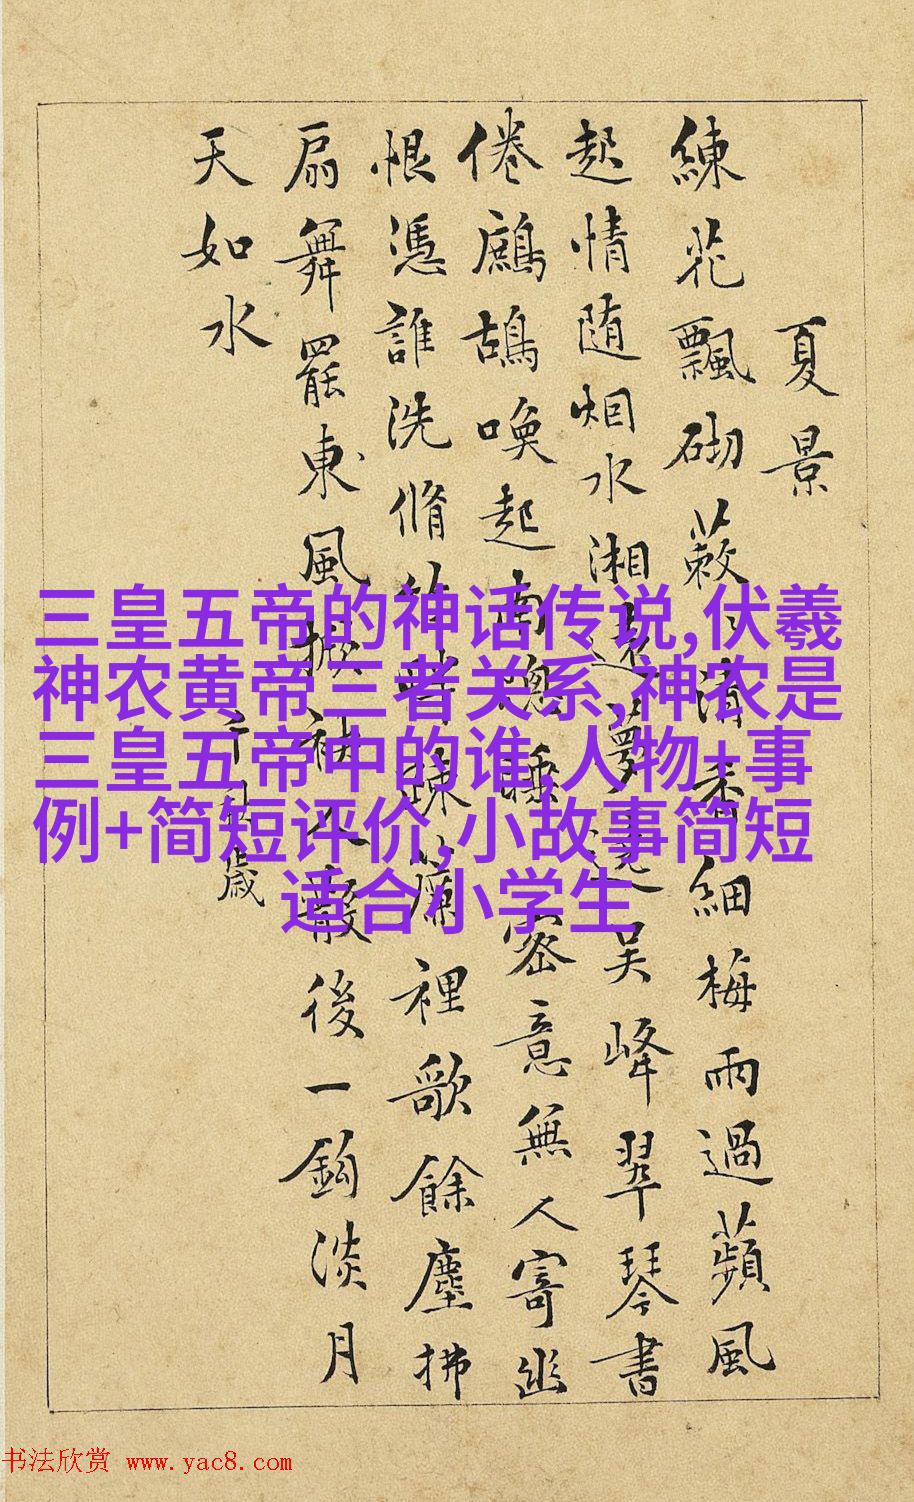 夏景
練花飄砌蔌〻清香細梅雨過蘋風
起情随烟水湘遠夢遶吳峰翠琴書
倦鷓鴣喚起南窻睡密意無人寄幽
恨憑誰洗脩竹畔疎簾裡歌餘塵拂
扇舞罷東風掀袂人散後一鈎淡月
天如水
三皇五帝的神话传说,伏羲
神农黄帝三者关系,神农是
三皇五帝中的谁,人物+事
例+简短评价,小故事简短
适合小学生
书法欣赏 www.yac8.com